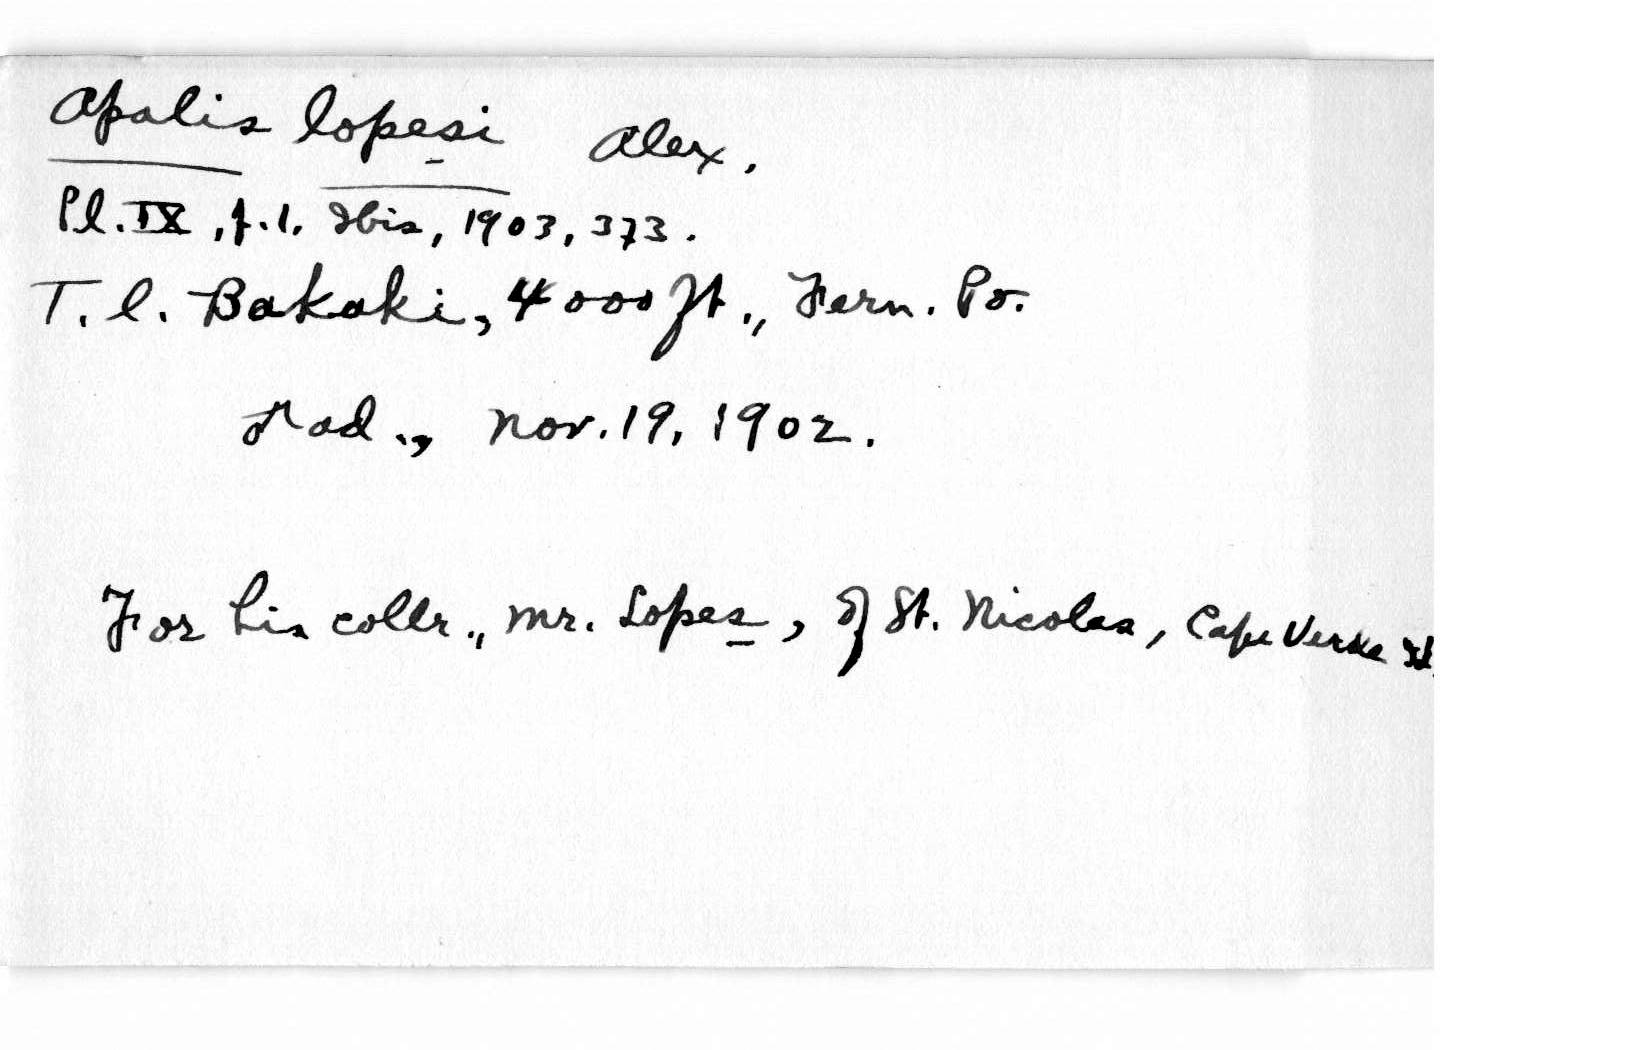 Apalis lopesi Alex.
Pl. IX, f.1. Ibis, 1903, 373.
T. l. Bakaki, 4000 ft., Fern. Po.
♂ ad., Nov. 19, 1902.
For his collr., Mr. Lopes, of St. Nicolas, Cape Verde Id.